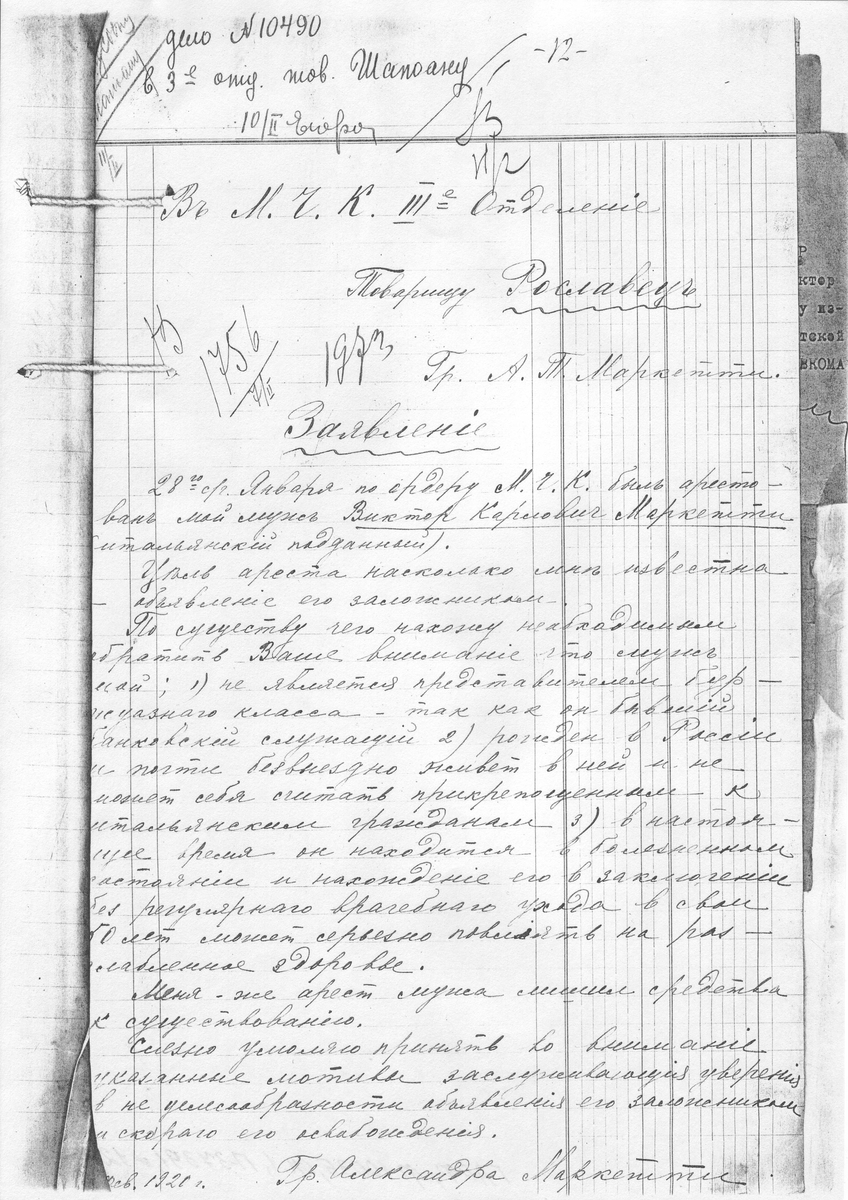 дело N 10490
-12-
в 3е отд. тов. Шапоану
10/II
11/II
Въ М. Ч. К. IIIе Отделеніе
Товарищу Рославецъ
1756
7/II
Гр. А. Т. Маркетти.
Заявленіе
28го с/г. Января по ордеру М. Ч. К. былъ аресто-
ванъ мой мужъ Виктор Карлович Маркетти
(итальянскій подданный).
Цѣль ареста насколько мнѣ известна
- объявленіе его заложником.
По существу чего нахожу необходимым
обратить Ваше вниманіе что мужъ
мой; 1) не является представителем бур-
жуазнаго класса - так как он бывшій
банковскій служащій 2) рожден в Россіи
и почти безвыездно живет в ней и не
может себя считать прикрепощенным к
итальянским гражданам 3) в настоя-
щее время он находится в болезненном
состояніи и нахожденіе его в заключеніи
без регулярнаго врачебнаго ухода в свои
60 лет может серьезно повлиять на рас-
слабленное здоровье.
Меня-же арест мужа лишил средства
к существованію.
Слезно умоляю принять во вниманіе
указанные мотивы заслуживающія уверенія
в не целесообразности объявленія его заложником
и скораго его освобожденія.
1921 г. Гр. Александра Маркетти
Р
ктор
у из-
тской
ВКОМА